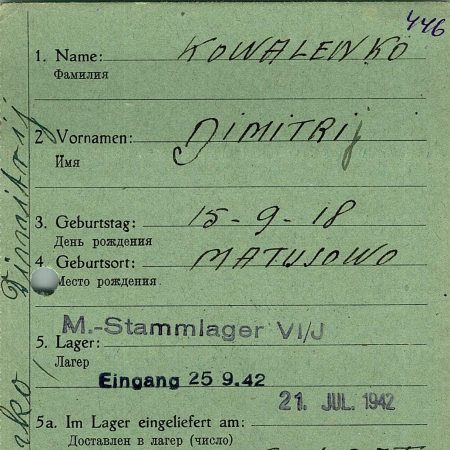 446
1. Name: KOWALENKO
Фамилия
2 Vornamen: DIMITRIJ
Имя
3. Geburtstag: 15-9-18
День рождения
4 Geburtsort: MATUSOWO
Место рождения
M.-Stammlager VI/J
5. Lager:
Лагер
Eingang 25 9.42
21. JUL. 1942
5a. Im Lager eingeliefert am:
Доставлен в лагер (число)
nko, Dimitrij